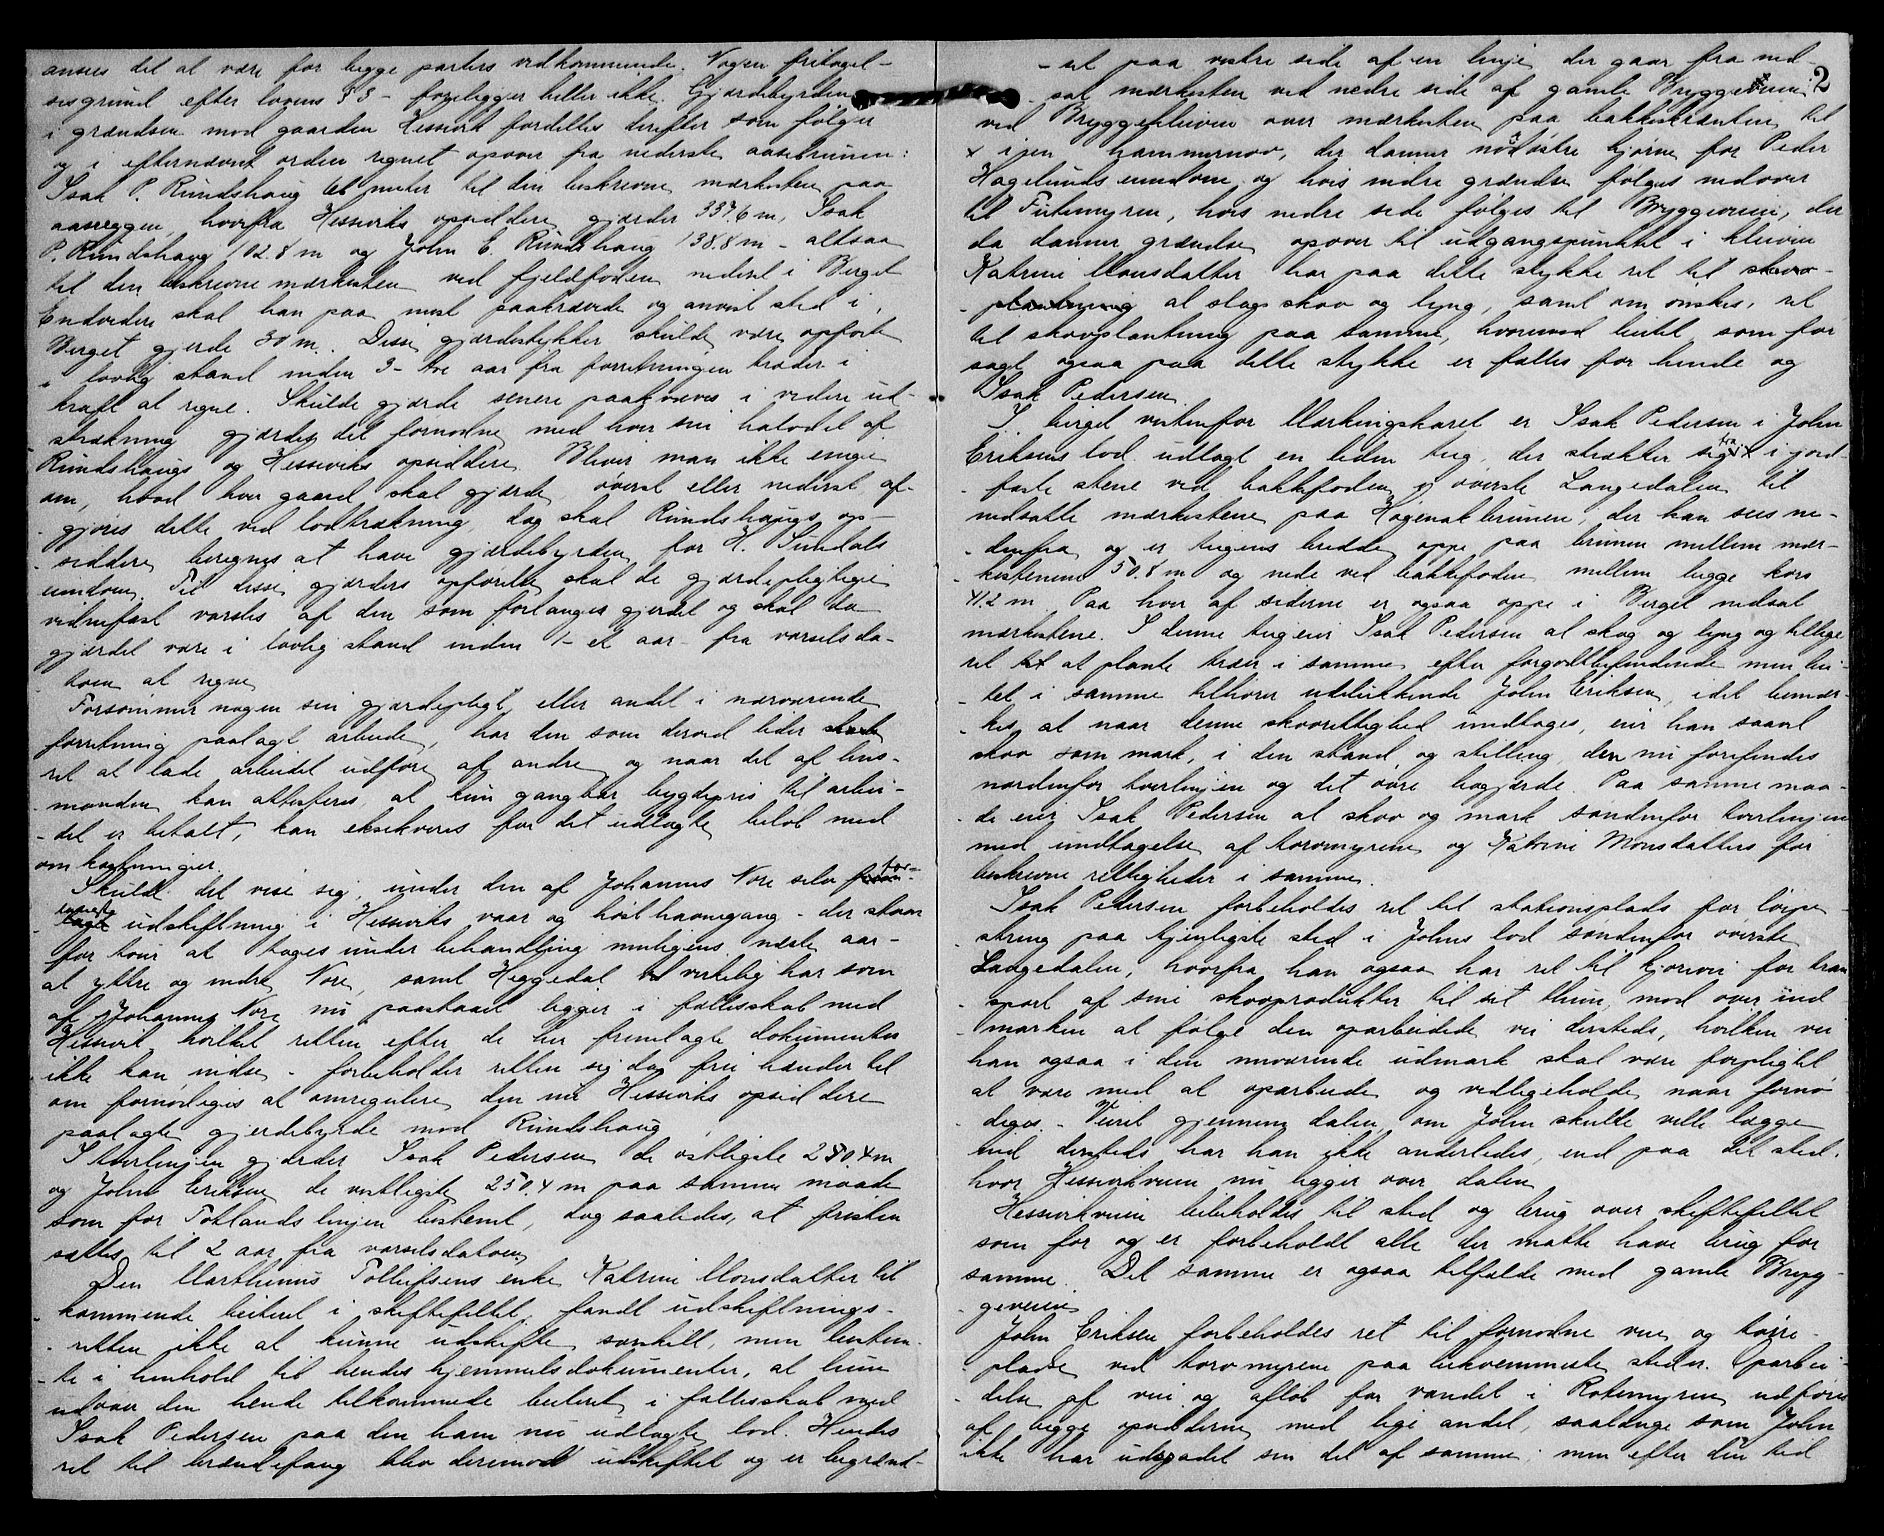 ansees det at være for begge parters vedkommende. Nogen fritagel-
sesgrund efter lovens § 3 - foreligger heller ikke. Gjærdebyrden
i grændsen mod gaarden Hessvik fordeltes derefter som følger
og i efternævnt orden regnet opover fra nederste aasebrunen:
Isak P. Rundshaug meter til den beskrevne merkesten paa
aaseggen, hvorfra Hessviks opsiddere gjærder 337.6 m, Isak
P. Rundshaug 102.8 m og John E. Rundshaug 138.8 m - altsaa
til den beskrevne merkesten ved fjeldfoden nederst i Berget
Endvidere skal han paa mest paakrævede og anvist sted i
Berget gjerde 30 m. Disse gjærdestykker skulde være opført
i lovlig stand inden 3 - tre aar fra forretningen træder i
kraft at regne. Skulde gjærde senere paakræves i videre ud-
strækning gjærdes det fornødne med hver sin halvdel af
Rundshaugs og Hessviks opsiddere. Bliver man ikke enige
om, hvad hver gaard skal gjærde øverst eller nederst af-
gjøres dette ved lodtrækning, dog skal Rundshaugs op-
siddere beregnes at have gjærdebyrden for H. Sundals
eiendom. Til disse gjærders opførelse skal de gjærdepligtige
vidnefast varsles af den som forlanges gjerdet og skal da
gjærdet være i lovlig stand inden 1 - et aar - fra varselsda-
toen at regne
Forsømmer nogen sin gjærdepligt eller andet i nærværende
forretning paalagt arbeide, har den som derved lider skade
ret at lade arbeidet udføre af andre og naar det af lens-
manden kan attesteres, at kun gangbar bygdepris til arbei-
det er betalt, kan eksekveres for det udlagte beløb med
omkostninger.
Skulde det vise sig, under den af Johannes Nore selv for-
langte udskiftning i Hessviks vaar og høst havnegang - der staar
for tour at tages under behandling muligens næste aar -
at ytre og indre Nore, samt Heggedal virkelig har som
af Johannes Nore nu paastaaet ligger i fællesskab med
Hessvik hvilket retten efter de her fremlagte dokumenter
ikke kan indse - forbeholder retten sig dog frie hænder til
om fornødiges at omregulere den nu Hessviks opsiddere
paalagte gjerdebyrde mod Rundshaug
I tverlinjen gjærder Isak Pedersen de østligste 250.4 m
og John Eriksen de vestligste 250.4 m paa samme maade
som for Toklandslinjen bestemt, dog saaledes, at fristen
sættes til 2 aar fra varselsdatoen
Den Marthinus Tollefsens enke Katrine Monsdatter til
kommende beiteret i skiftefeltet fandt udskiftnings-
retten ikke at kunne udskifte særskilt, men bestem-
te i henhold til hendes hjemmelsdokumenter, at hun
udøver den hende tilkommende beiteret i fællesskab med
Isak Pedersen paa den ham nu udlagte lod. Hendes
ret til brændefang blev derimod udskiftet og er begrænd-
2
- set paa vestre side af en linje der gaar fra ned-
sat merkesten ved nedre side af gamle Bryggeveien
ved Bryggekleiven over merkesten paa bakkeskrænten til
x i en hammernov, der danner nordøstre hjørne for Peder
Hagelunds eiendom og hvis nedre grændse følges nedover
til Firtemyren, hvis nedre side følges til Bryggeveien, der
da danner grændse opover til udgangspunktet i kleiven
Katrine Monsdatter har paa dette stykke ret til skov-
plantning at slags skov og lyng, samt om ønskes, ret
til skovplantning paa samme, hvorimod beitet som for
sagt ogsaa paa dette stykke er fælles for hende og
Isak Pedersen.
I berget vestenfor Mærkingskaret er Isak Pedersen i John
Eriksens lod udlagt en liden teig, der strækker sig fra x i jord-
faste stene ved bakkefoden i øverste Langedalen til
nedsatte merkestene paa Høgenakbrunen, der kan sees ne-
denfra og er teigens bredde oppe paa brunen mellem mer-
kestenene 50.8 m og nede ved bakkefoden mellem begge kors
41.2 m. Paa hver af siderne er ogsaa oppe i Berget nedsat
merkestene. I denne teig eier Isak Pedersen al skog og lyng og tillige
ret til at plante træer i samme efter forgodtbefindende men bei-
tet i samme tilhører udelukkende John Eriksen, idet bemær-
kes, at naar denne skovrettighed undtages, eier han saavel
skov som mark, i den stand og stilling, den nu forefindes
nordenfor tverlinjen og det øvre bøgjerde. Paa samme maa-
de eier Isak Pedersen al skov og mark søndenfor tverlinjen
med undtagelse af torvmyrene og Katrine Monsdatters for
beskrevne rettigheder i samme.
Isak Pedersen forbeholdes ret til stationsplads for løipe
streng paa tjenligste sted i Johns lod søndenfor øverste
Langedalen, hvorfra han ogsaa har ret til kjørevei for tran
sport af sine skovprodukter til sit hjem, mod over ind
marken at følge den oparbeidede vei dersteds, hvilken vei
han ogsaa i den nuværende udmark skal være forpligtet
at være med at oparbeide og vedligeholde naar fornø
diges. - Veiret gjennem dalen, om John skulde ville lægge
ind dersteds har han ikke anderledes, end paa det sted,
hvor Hessvikveien nu ligger over dalen
Hessvikveien beibeholdes til sted og brug over skiftefeltet
som før og er forbeholdt alle der maatte have brug for
samme. Det samme er ogsaa tilfælde med gamle Bryg
geveien
John Eriksen forbeholdes ret til fornødne veie og tørre-
pladse ved torvmyrene paa bekvemmeste steder. Oparbei-
delse af vei og afløb for vandet i Rotemyren udføres
af begge opsidderne med lige andel, saalænge som John
ikke har udspadet sin del af samme, men efter den tid